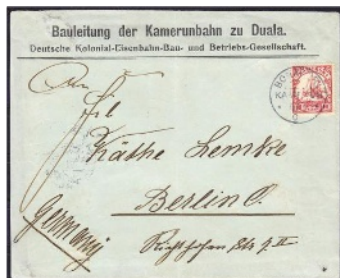 Bauleitung der Kamerunbahn zu Duala.
Deutsche Kolonial-Eisenbahn-Bau- und Betriebs-Gesellschaft.
An
Frl.
Käthe Lemke
Berlin O.
Germany